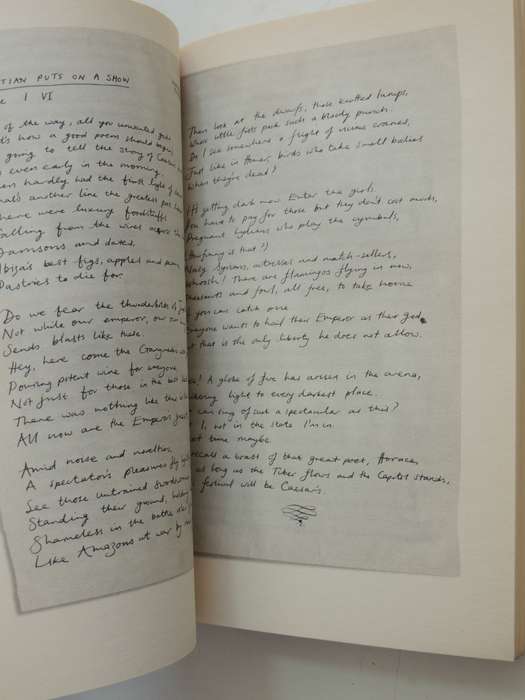 TIAN PUTS ON A SHOW
I VI
of the way, all you
how a good poem should begin
going to tell the story of
even early in the morning,
hardly had the first light of
another line the greatest
here were luxury foodstuffs
falling from the wires across the
Damsons and dates,
Ibiza's best figs, apples and
Pastries to die for.
Do we fear the thunderbolts of
Not while our emperor, our own
Sends blasts like these.
Hey, here come the
Pouring potent wine for everyone
Not just for those in the best
There was nothing like this
All now are the Emperor's
Amid noise and novelties
A spectator's pleasures fly
See those untrained swordsmen
Standing their ground, holding
Shameless in the battle
Like Amazons at war by
Then look at the dwarfs, those knotted lumps,
Whose little fists pack such a bloody punch.
Do I see somewhere a flight of cranes,
Just like in Homer, birds who take small bodies
When they're dead?
It's getting dark now. Enter the girls.
You have to pay for those but they don't cost much,
Pregnant Lydians who play the cymbals,
(How funny is that?)
Syrians, actresses and match-sellers,
Whoosh! There are flamingos flying in now,
Pheasants and fowl, all free, to take home
you can catch one.
Everyone wants to hail their Emperor as their god
that is the only liberty he does not allow.
! A globe of fire has arisen in the arena,
light to every darkest place.
can sing of such a spectacular as this?
I, not in the state I'm in.
time maybe.
recall a boast of that great poet, Horace,
as long as the Tiber flows and the Capitol stands,
festival will be Caesar's.